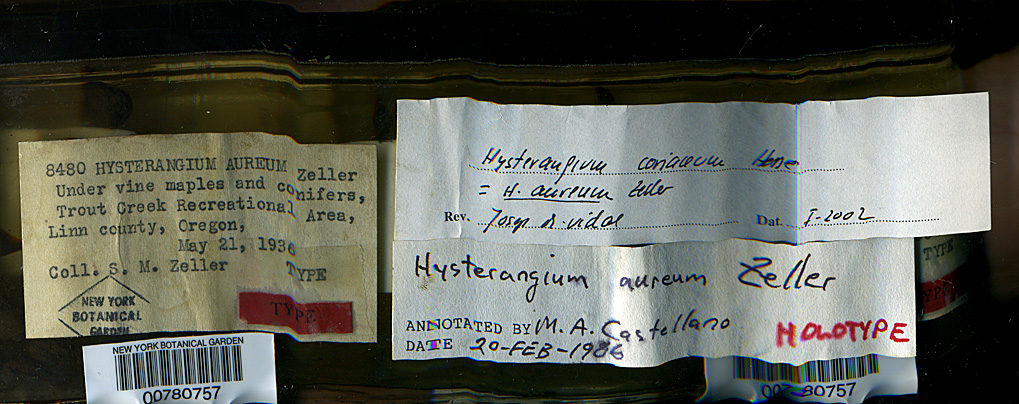 8480 HYSTERANGIUM AUREUM Zeller
Under vine maples and conifers,
Trout Creek Recreational Area,
Linn county, Oregon,
May 21, 1936
Coll. S. M. Zeller
TYPE
TYPE
NEW YORK
BOTANICAL
GARDEN
NEW YORK BOTANICAL GARDEN
00780757
Hysterangium coriaceum Hesse
= H. aureum Zeller
Rev. Vidal
Dat. I-2002
Hysterangium aureum Zeller
ANNOTATED BY M. A. Castellano
DATE 20-FEB-1986
HOLOTYPE
TYPE
TYPE
80757